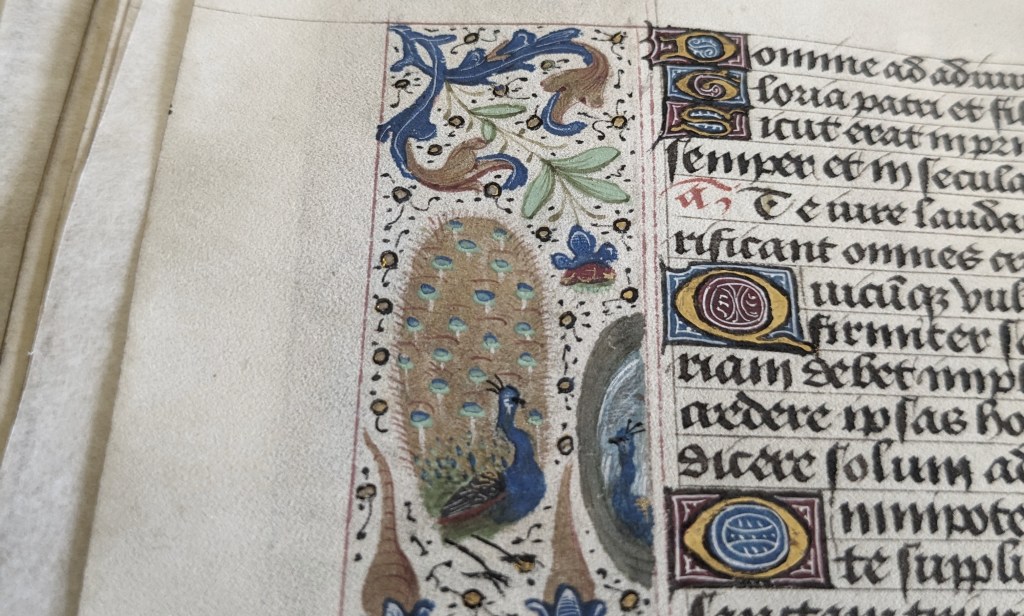 Domine ad adiuu
Gloria patri et fil
Sicut erat in pri
semper et in secula
A. Te iure lauda
rificant omnes
Quicūqz vul
firmiter
riam debet
credere ipsas ho
dicere solum ad
Omnipote
te suppli